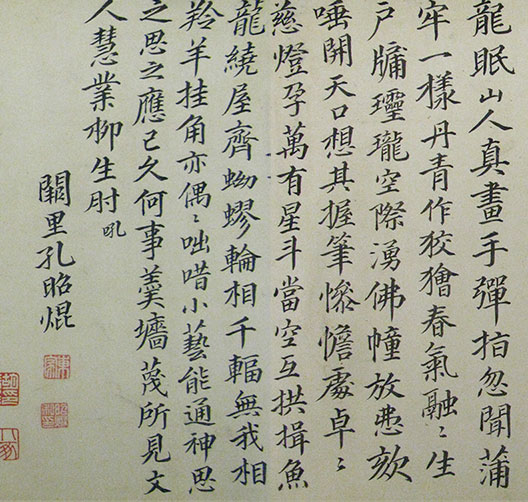 龍眠山人真畫手彈指忽聞蒲
牢一樣丹青作狡獪春氣融〻生
戶牖瓏空際湧佛幢放欬
唾開天口想其握筆慘憺處卓〻
慈燈孕萬有星斗當空互拱揖魚
龍繞屋齊蚴蟉輪相千輻無我相
羚羊挂角亦偶〻咄唶小藝能通神思
之思之應已久何事羹墻蔑所見文
人慧業柳生肘 吼
闕里孔昭焜